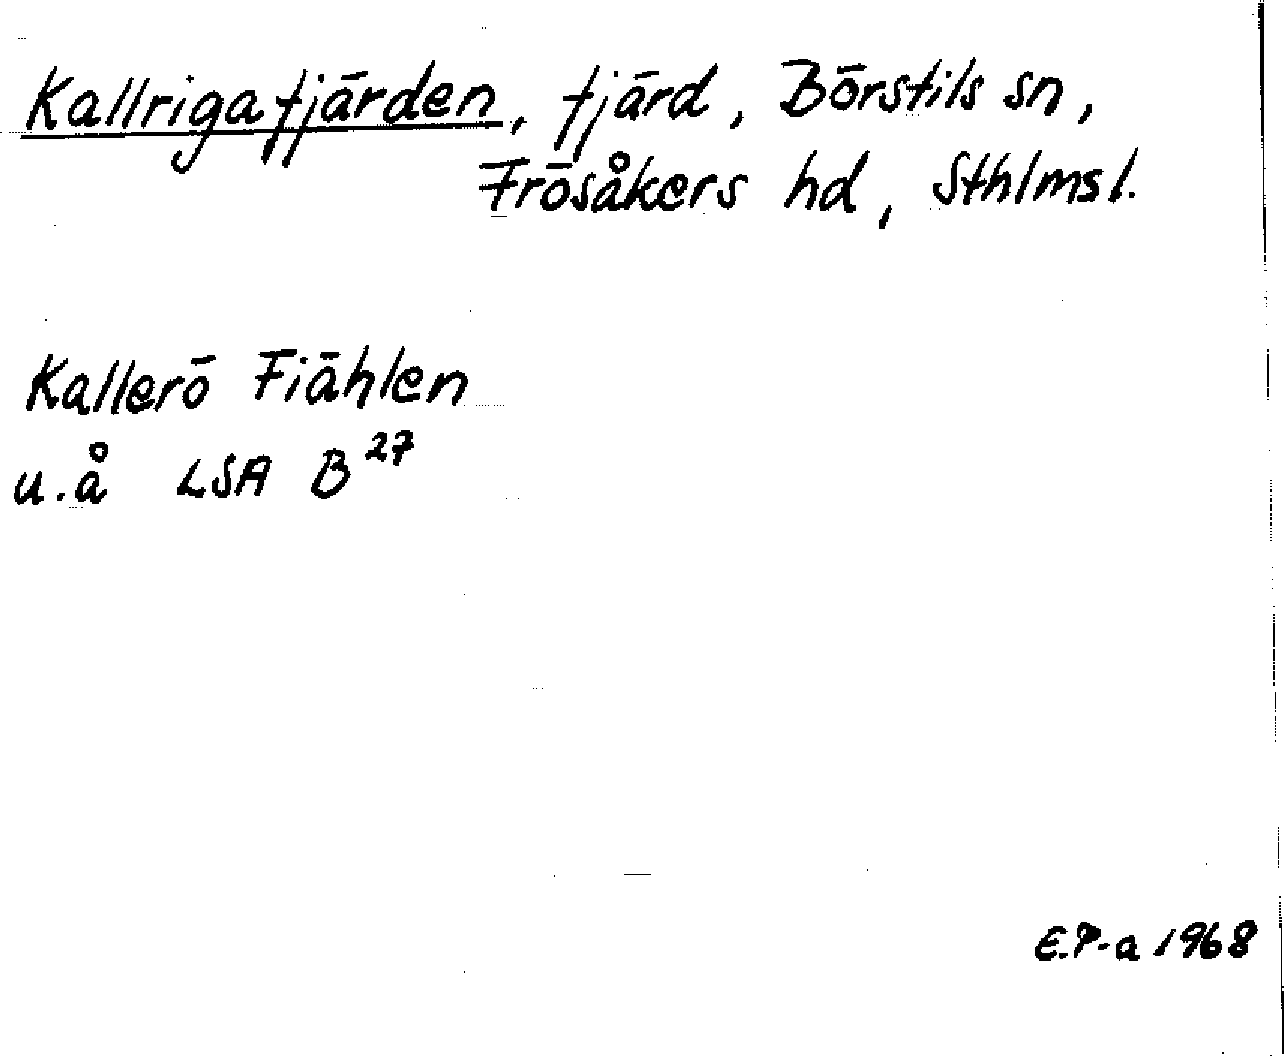 Kallrigafjärden, fjärd, Börstils sn,
Frösåkers hd, Sthlms l.
Kallerö Fiählen
u.å LSA B 27
E.P-a 1968